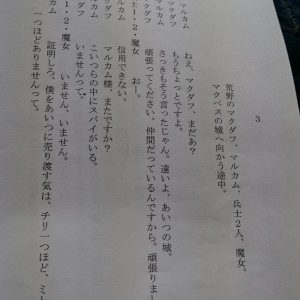 3
荒野のマクダフ、マルカム、兵士2人、魔女、
マクベスの城へ向かう途中。
マルカム ねえ、マクダフ、まだあ?
マクダフ もうちょっとですよ。
マルカム さっきもそう言ったじゃん。遠いよ、あいつの城。
マクダフ 頑張ってください。仲間だっているんですから。頑張りまし
兵士1・2・魔女 おー。
マルカム 信用できない。
マクダフ マルカム様、またですか?
マルカム こいつらの中にスパイがいる。
マクダフ いませんって。
士1・2・魔女 いません、いません。
カム 証明しろ。僕をあいつに売り渡す気は、チリ一つほど、ミト
一つほどありませんって。